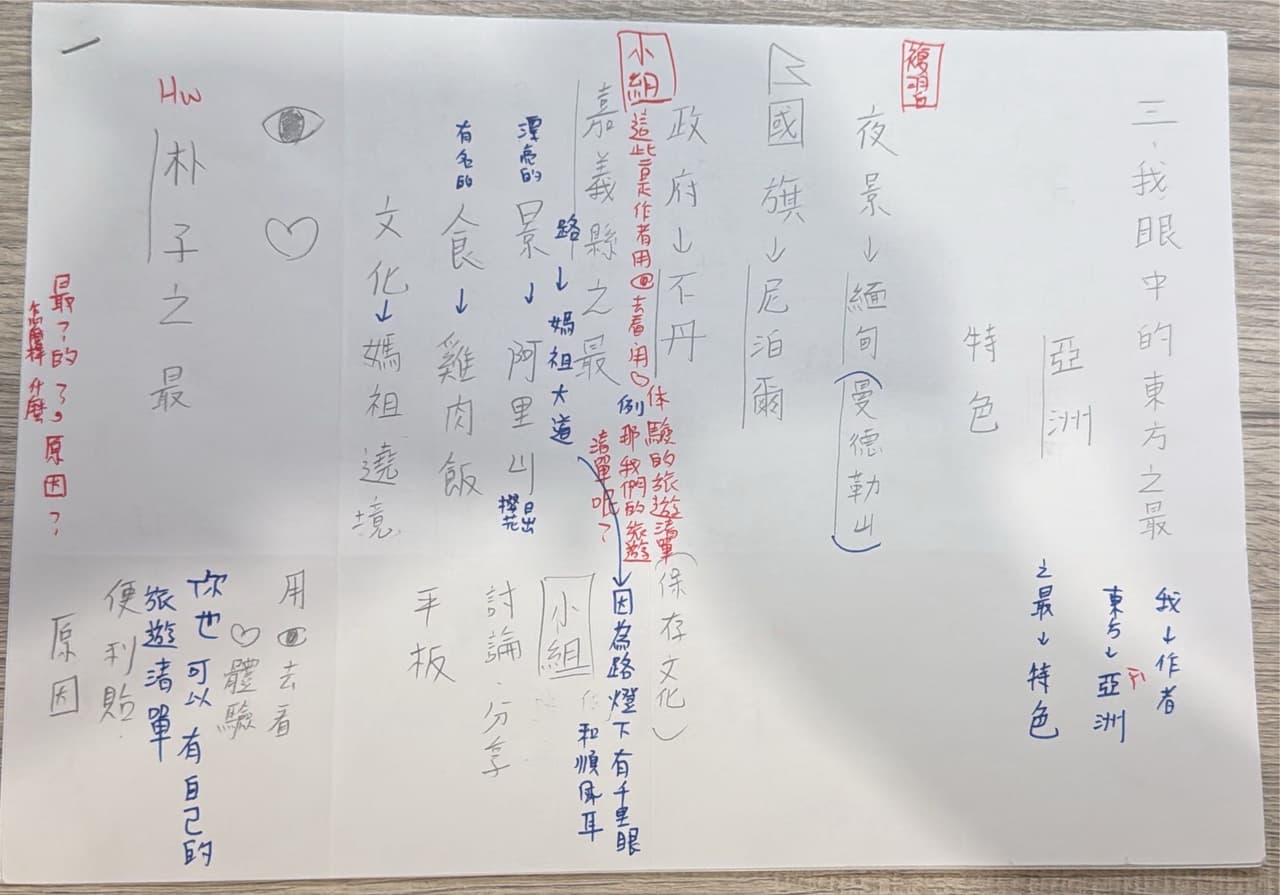 三、我眼中的東方之最
我→作者
東方→亞洲
之最→特色
亞洲
特色
複習
夜景→緬甸(曼德勒山)
國旗→尼泊爾
政府→不丹
(保存文化)
小組
這些是作者用去看用♡體驗的旅遊清單
例
那我們的旅遊清單呢?
嘉義縣之最
路→媽祖大道
因為路燈下有千里眼和順風耳
漂亮的
景→阿里山
日出
櫻花
有名的
食→雞肉飯
文化→媽祖遶境
小組
討論、分享
平板
♡
用去看
♡體驗
你也可以有自己的旅遊清單
便利貼
原因
HW
朴子之最
最?的?,原因?
怎麼樣
什麼